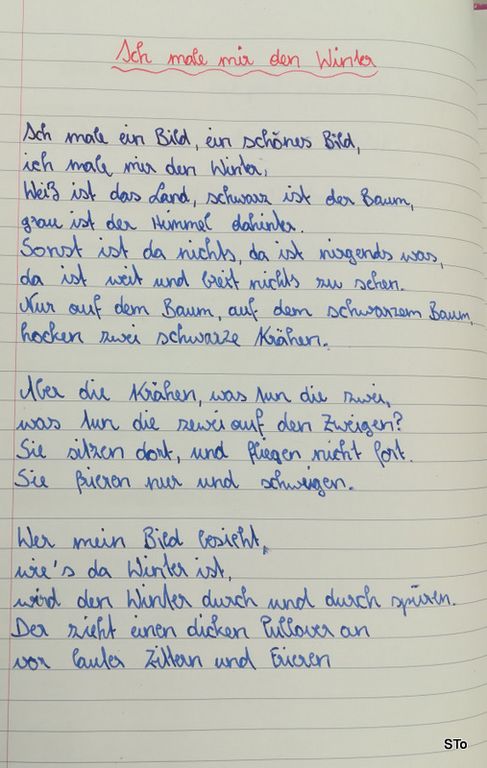 Ich male mir den Winter
Ich male ein Bild, ein schönes Bild,
ich male mir den Winter,
Weiß ist das Land, schwarz ist der Baum,
grau ist der Himmel dahinter.
Sonst ist da nichts, da ist nirgends was,
da ist weit und breit nichts zu sehen.
Nur auf dem Baum, auf dem schwarzem Baum,
hocken zwei schwarze Krähen.
Aber die Krähen, was tun die zwei,
was tun die zewei auf den Zweigen?
Sie sitzen dort, und fliegen nicht fort.
Sie frieren nur und schweigen.
Wer mein Bild besieht,
wie's da Winter ist,
wird den Winter durch und durch spüren.
Der zieht einen dicken Pullover an
vor lauter Zittern und Frieren
STo